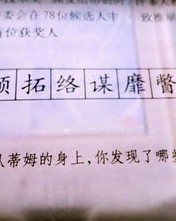 委会在78位候选人中
位获奖人
拓络谋靡瞥
从蒂姆的身上，你发现了哪些